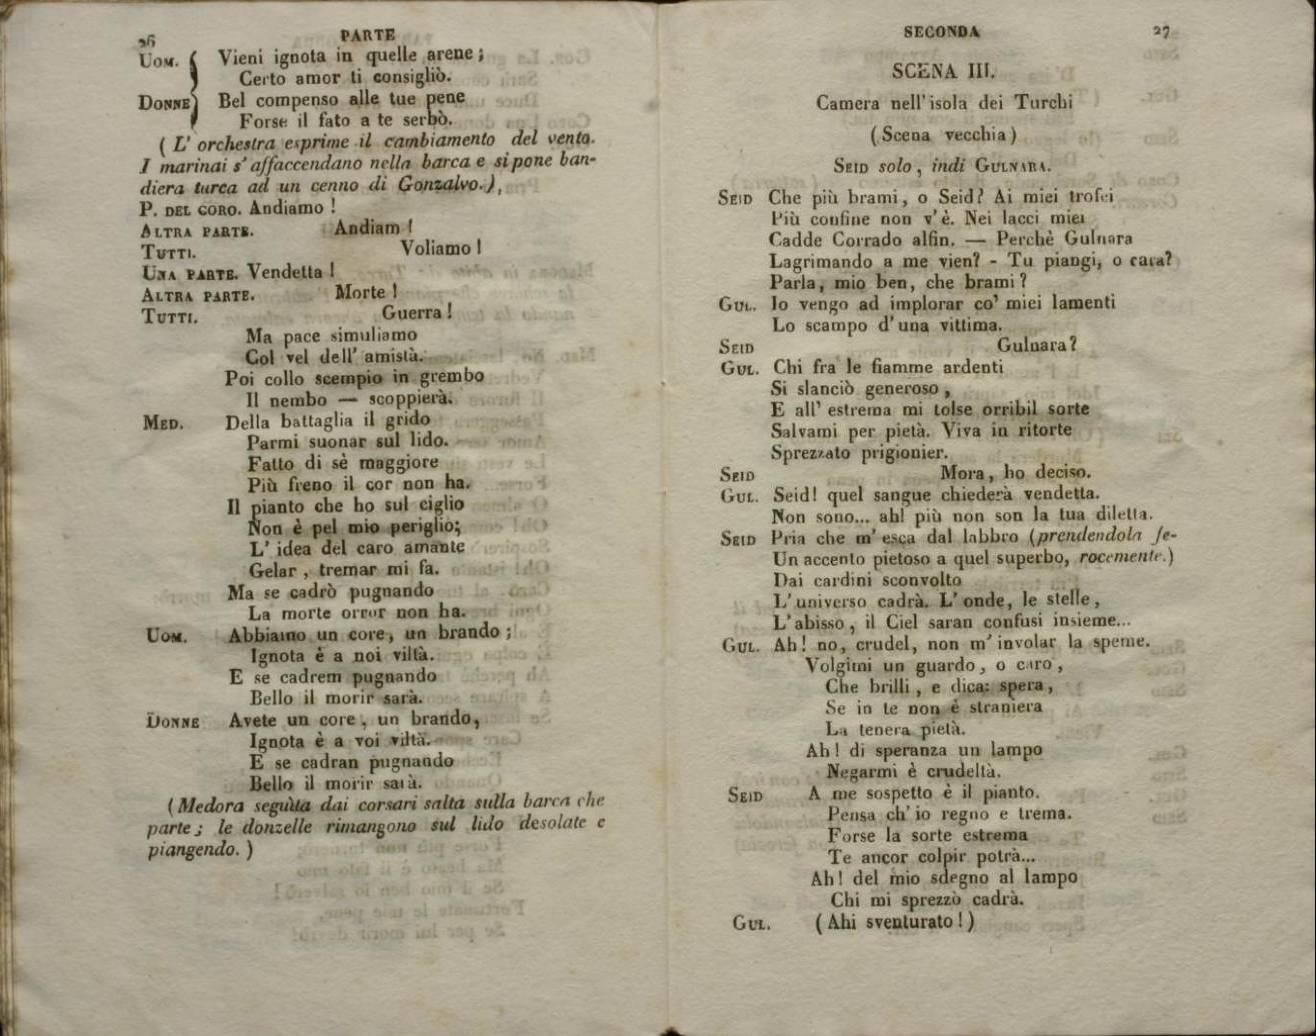 26
PARTE
UOM. Vieni ignota in quelle arene;
Certo amor ti consigliò.
DONNE Bel compenso alle tue pene
Forse il fato a te serbò.
( L' orchestra esprime il cambiamento del vento.
I marinai s' affaccendano nella barca e si pone ban-
diera turca ad un cenno di Gonzalvo.)
P. DEL CORO. Andiamo !
ALTRA PARTE. Andiam !
TUTTI. Voliamo !
UNA PARTE. Vendetta !
ALTRA PARTE. Morte !
TUTTI. Guerra !
Ma pace simuliamo
Col vel dell' amistà.
Poi collo scempio in grembo
Il nembo — scoppierà.
MED. Della battaglia il grido
Parmi suonar sul lido.
Fatto di sè maggiore
Più freno il cor non ha.
Il pianto che ho sul ciglio
Non è pel mio periglio;
L' idea del caro amante
Gelar , tremar mi fa.
Ma se cadrò pugnando
La morte orror non ha.
UOM. Abbiamo un core, un brando ;
Ignota è a noi viltà.
E se cadrem pugnando
Bello il morir sarà.
DONNE Avete un core , un brando,
Ignota è a voi viltà.
E se cadran pugnando
Bello il morir sarà.
( Medora seguìta dai corsari salta sulla barca che
parte; le donzelle rimangono sul lido desolate e
piangendo. )
SECONDA
27
SCENA III.
Camera nell' isola dei Turchi
( Scena vecchia )
SEID solo , indi GULNARA.
SEID Che più brami, o Seid? Ai miei trofei
Più confine non v' è. Nei lacci miei
Cadde Corrado alfin. — Perchè Gulnara
Lagrimando a me vien? - Tu piangi, o cara?
Parla, mio ben, che brami ?
GUL. Io vengo ad implorar co' miei lamenti
Lo scampo d' una vittima.
SEID Gulnara?
GUL. Chi fra le fiamme ardenti
Si slanciò generoso ,
E all' estrema mi tolse orribil sorte
Salvami per pietà. Viva in ritorte
Sprezzato prigionier.
SEID Mora, ho deciso.
GUL. Seid! quel sangue chiederà vendetta.
Non sono... ah! più non son la tua diletta.
SEID Pria che m' esca dal labbro (prendendola fe-
Un accento pietoso a quel superbo, rocemente.)
Dai cardini sconvolto
L' universo cadrà. L' onde, le stelle ,
L' abisso , il Ciel saran confusi insieme...
GUL. Ah! no, crudel, non m' involar la speme.
Volgimi un guardo , o caro ,
Che brilli , e dica: spera ,
Se in te non è straniera
La tenera pietà.
Ah! di speranza un lampo
Negarmi è crudeltà.
SEID A me sospetto è il pianto.
Pensa ch' io regno e trema.
Forse la sorte estrema
Te ancor colpir potrà...
Ah! del mio sdegno al lampo
Chi mi sprezzò cadrà.
GUL. ( Ahi sventurato ! )